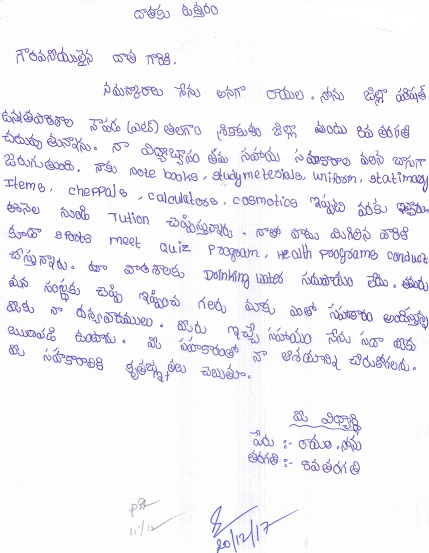 దాతకు ఉత్తరం
గౌరవనీయులైన దాత గారికి.
నమస్కారాలు నేను అనగా రాయల. నేను జిల్లా పరిషత్
ఉన్నత పాఠశాల జిల్లా నందు తరగతి
చదువు తున్నాను. నా విద్యాభ్యాసం తమ సహాయ సహకారాల వలన బాగుగా
జరుగుతుంది. నాకు note books, study meterials, uniform, stationary
Items, cheppals, calculators, cosmotics ఇప్పటి వరకు
నుండి Tution చెప్పిస్తున్నారు. నాతో పాటు మిగిలిన వారికి
కూడా sports meet quiz program, Health programs conduct
చేస్తున్నారు. మా పాఠశాలకు Drinking water సదుపాయం లేదు.
మన సంస్థకు చెప్పి ఇప్పించ గలరు మాకు సహకారం
మీకు నా ధన్యవాదములు. మీరు ఇచ్చే సహాయం నేను సదా మీకు
ఉంటాను. మీ సహకారంతో నా ఆశయాన్ని చేరుకోగలను.
మీ సహకారానికి కృతజ్ఞతలు చెబుతూ.
మీ విద్యార్థి
పేరు :- రాయల. నేను
తరగతి :- తరగతి
20/12/17